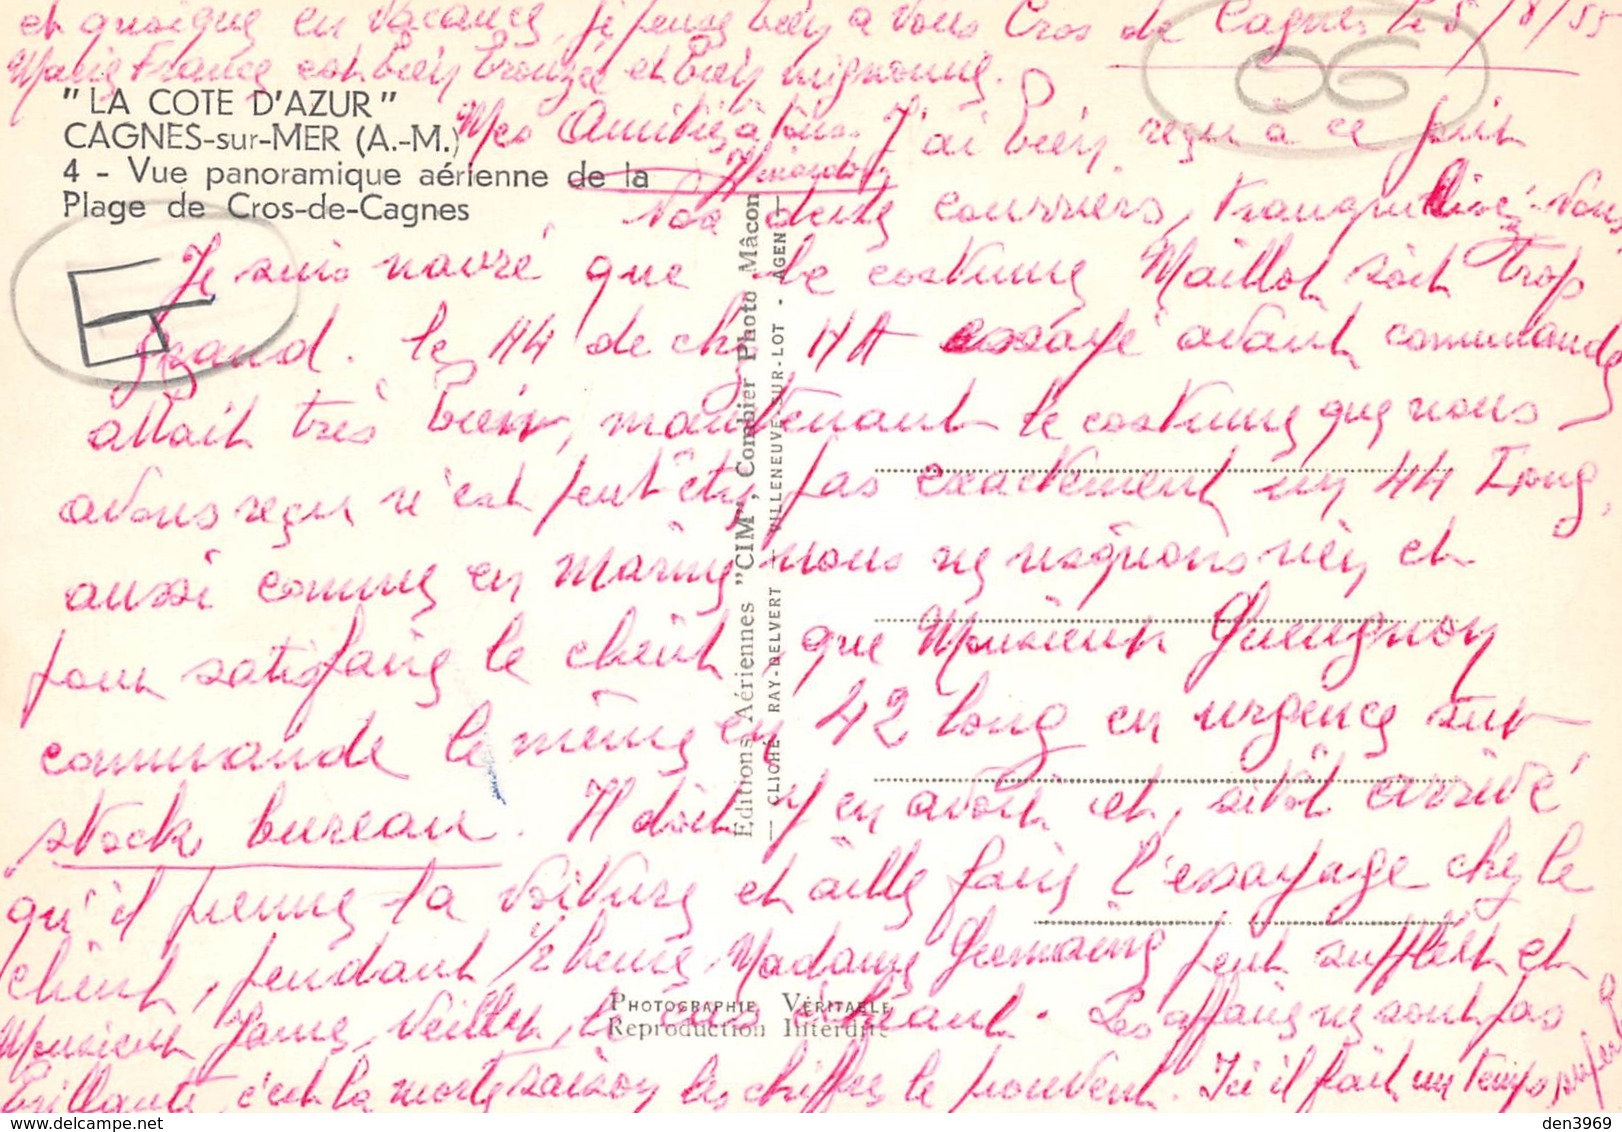 et quoique en vacances, je pense bien à vous Cros de Cagnes le 5/8/55
Marie France est bien bronzée et bien mignonne.
Mes Amitiés à tous.
"LA COTE D'AZUR"
CAGNES-sur-MER (A.-M.)
4 - Vue panoramique aérienne de la
Plage de Cros-de-Cagnes
OG
J'ai bien reçu à ce jour
Vos deux courriers, tranquillisez-vous
Je suis navré que le costume Maillot soit trop
grand. le 44 de chez essayé avant commande
allait très bien, maintenant le costume que nous
avons reçu n'est peut être pas exactement un 44 Long,
aussi comme en Marine nous ne risquons rien et
pour satisfaire le client, que Monsieur Gueugnon
commande le même en 42 long en urgence sur
stock bureau. Il doit y en avoir et, sitôt arrivé
qu'il prenne la voiture et aille faire l'essayage chez le
client, pendant 1/2 heure, Madame Germaine peut suffire et
Monsieur Jame, veiller, Les affaires ne sont pas
brillantes, c'est la morte saison les chiffres le prouvent. Ici il fait un temps superbe
Editions Aériennes "CIM", Combier Photo Mâcon
— CLICHÉ RAY-DELVERT — VILLENEUVE-SUR-LOT - AGEN —
PHOTOGRAPHIE VÉRITABLE
Reproduction Interdite
den3969